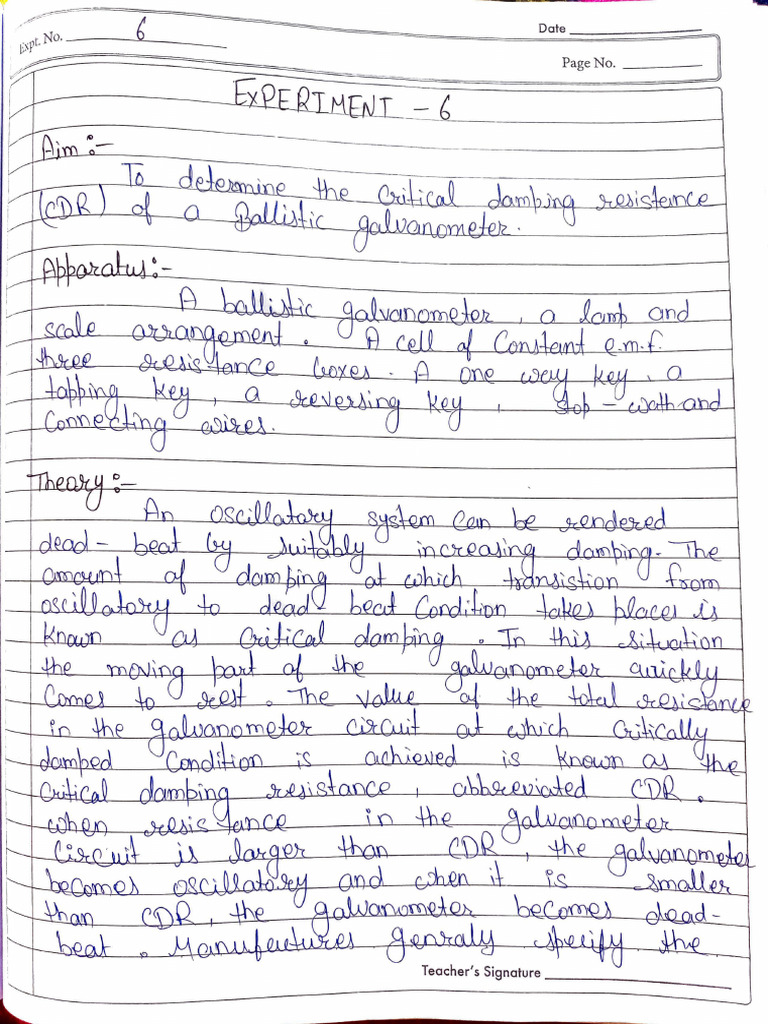 Expt. No. 6
Date
Page No.
EXPERIMENT - 6
Aim :-
To determine the critical damping resistance
(CDR) of a Ballistic galvanometer.
Apparatus:-
A ballistic galvanometer, a lamp and
scale arrangement. A cell of Constant e.m.f.
three resistance boxes. A one way key, a
tapping key, a reversing key, stop - wath and
Connecting wires.
Theory :-
An oscillatory system can be rendered
dead- beat by suitably increasing damping. The
amount of damping at which transistion from
oscillatory to dead- beat Condition takes places is
known as critical damping. In this situation
the moving part of the galvanometer quickly
Comes to rest. The value of the total resistance
in the galvanometer circuit at which critically
damped Condition is achieved is known as the
Critical damping resistance, abbreviated CDR.
when resistance in the galvanometer
Circuit is larger than CDR, the galvanometer
becomes oscillatory and when it is smaller
than CDR, the galvanometer becomes dead-
beat. Manufactures genraly specify the
Teacher's Signature